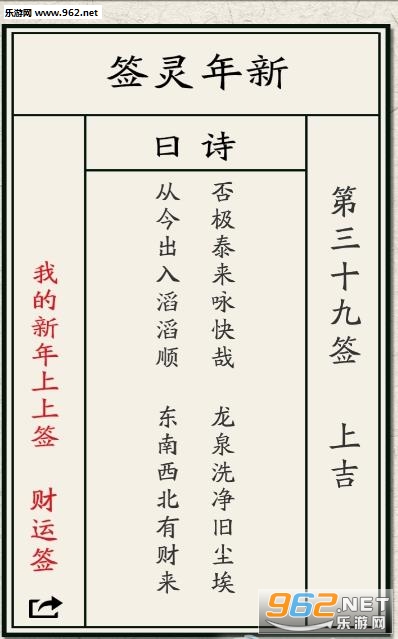 乐游网 www.962.net
新年灵签
诗曰
第三十九签 上吉
否极泰来咏快哉 龙泉洗净旧尘埃
从今出入滔滔顺 东南西北有财来
我的新年上上签 财运签
962.NET
乐游网